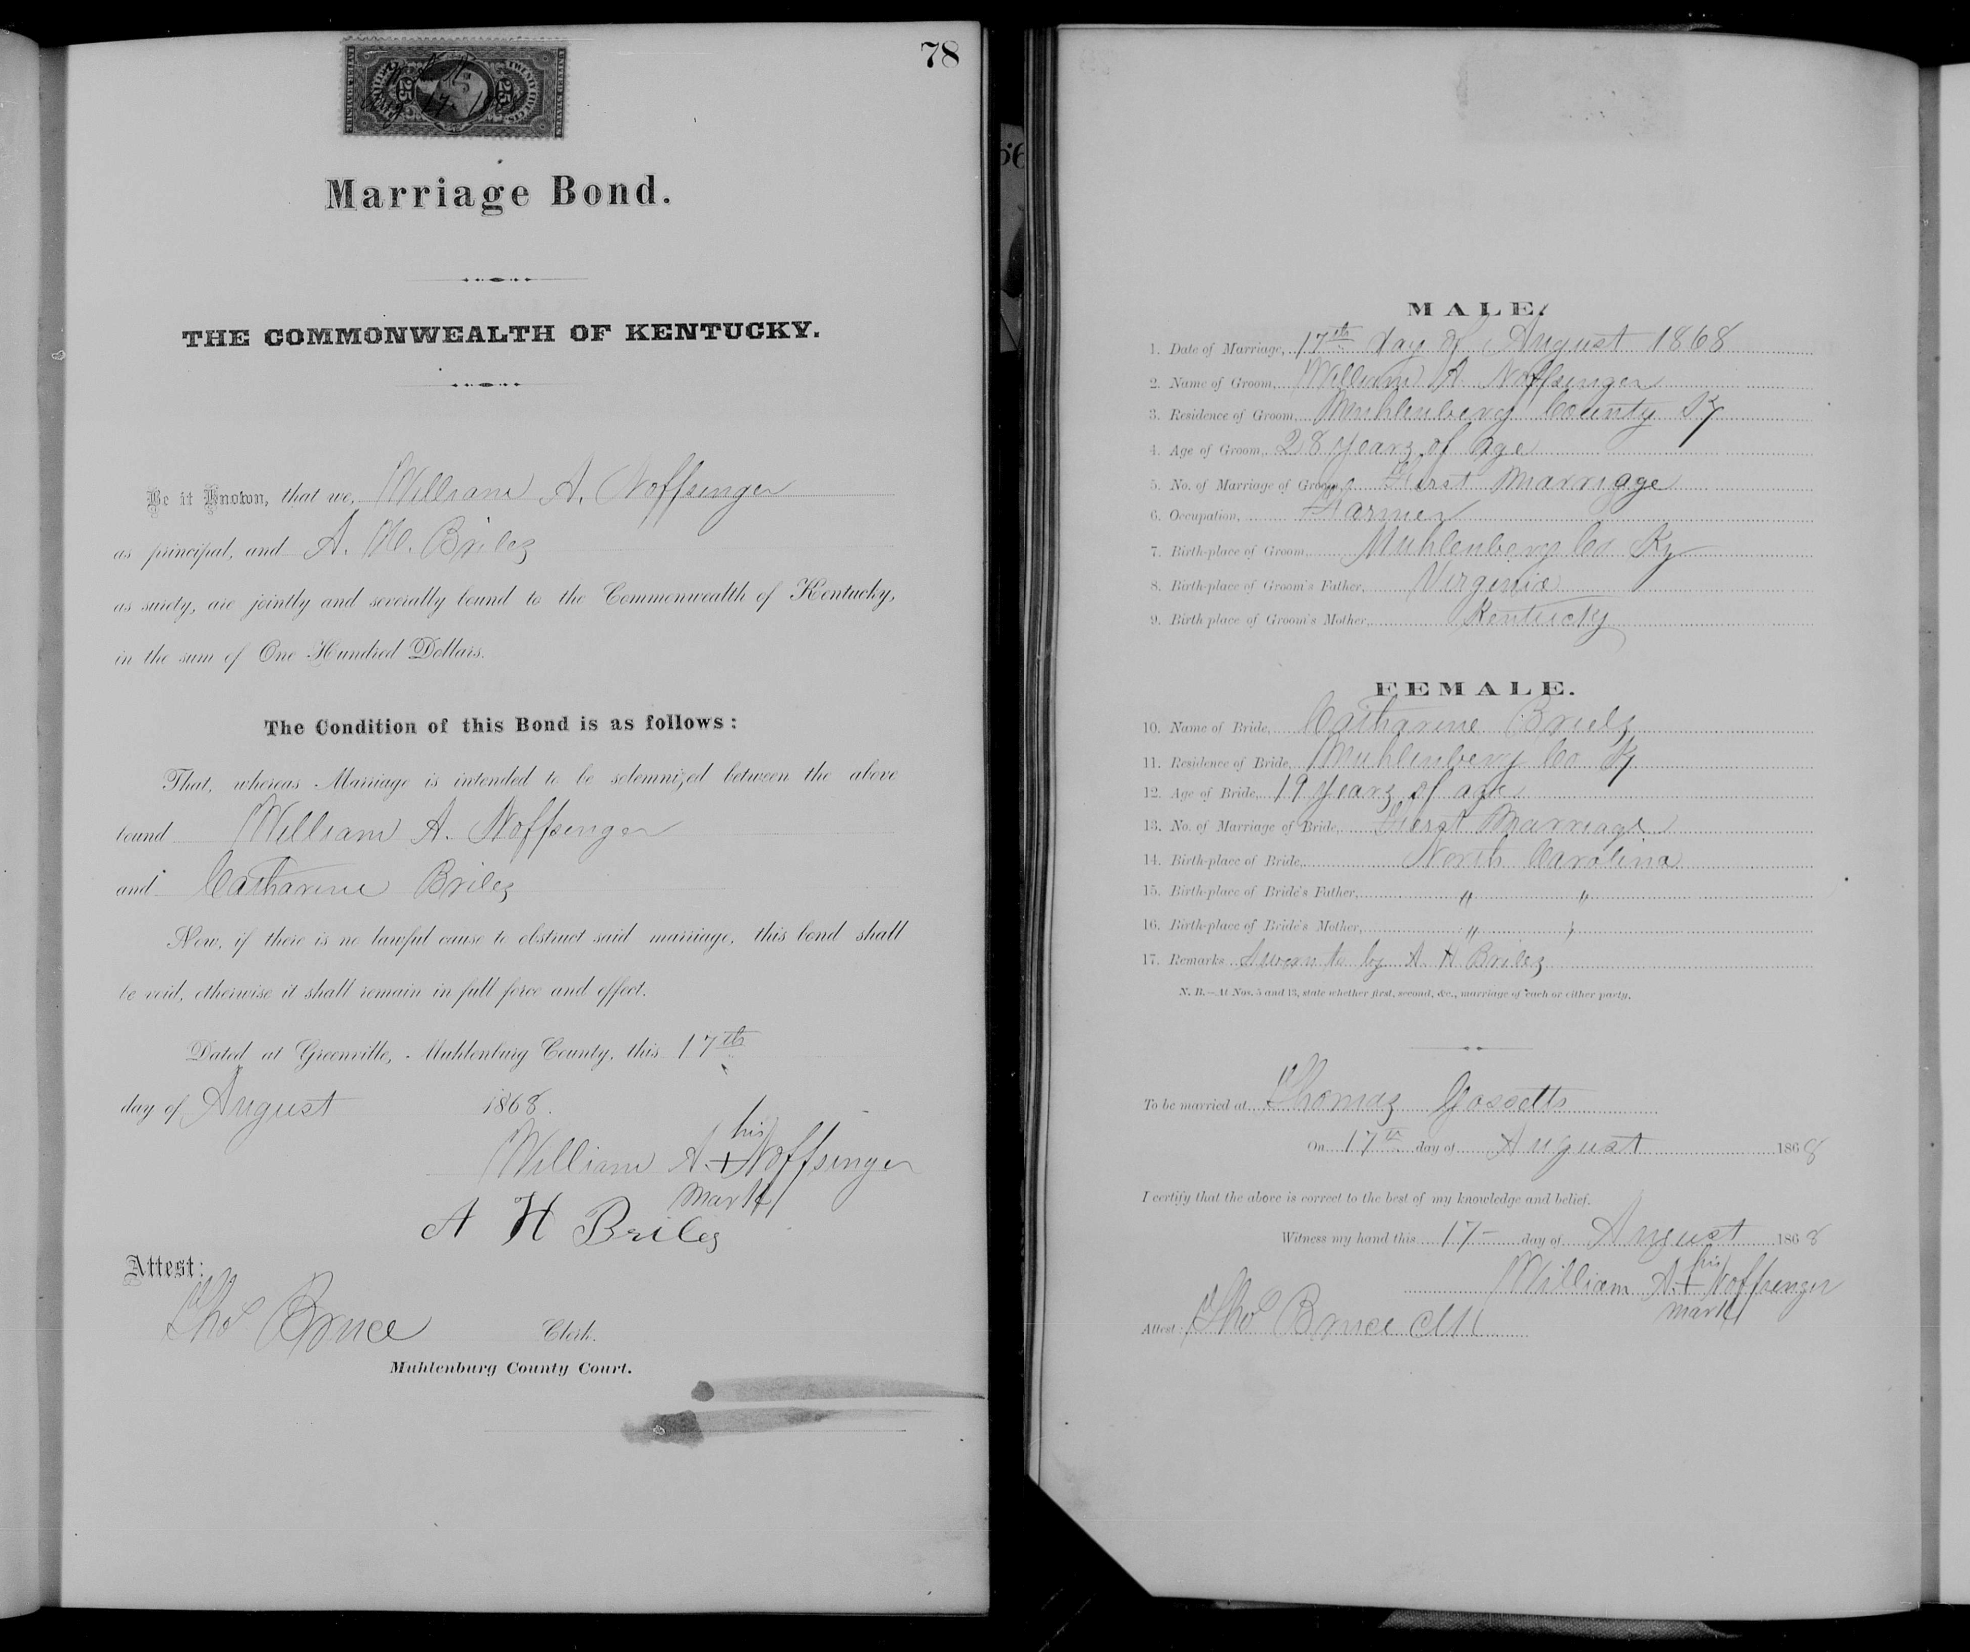 78
W A N
Aug 17 1868
25 25
Marriage Bond.
THE COMMONWEALTH OF KENTUCKY.
Be it Known, that we, William A. Noffsinger
as principal, and A. H. Briles
as surety, are jointly and severally bound to the Commonwealth of Kentucky,
in the sum of One Hundred Dollars.
The Condition of this Bond is as follows:
That, whereas Marriage is intended to be solemnized between the above
bound William A. Noffsinger
and Catharine Briles
Now, if there is no lawful cause to obstruct said marriage, this bond shall
be void, otherwise it shall remain in full force and effect.
Dated at Greenville, Muhlenburg County, this 17th
day of August 1868.
his
William A. + Noffsinger
mark
A H Briles
Attest:
Tho's Bruce Clerk.
Muhlenburg County Court.
MALE.
1. Date of Marriage, 17th day of August 1868
2. Name of Groom, William A Noffsinger
3. Residence of Groom, Muhlenberg County Ky
4. Age of Groom, 28 years of age
5. No. of Marriage of Groom, First Marriage
6. Occupation, Farmer
7. Birth-place of Groom, Muhlenberg Co Ky
8. Birth-place of Groom's Father, Virginia
9. Birth place of Groom's Mother, Kentucky
FEMALE.
10. Name of Bride, Catharine Briels
11. Residence of Bride, Muhlenberg Co Ky
12. Age of Bride, 19 years of age
13. No. of Marriage of Bride, First Marriage
14. Birth-place of Bride, North Carolina
15. Birth-place of Bride's Father, " "
16. Birth-place of Bride's Mother, " "
17. Remarks Sworn to by A H Briles
N. B.—At Nos. 5 and 13, state whether first, second, &c., marriage of each or either party.
To be married at Thomas Gossetts
On 17th day of August 1868
I certify that the above is correct to the best of my knowledge and belief.
Witness my hand this 17- day of August 1868
his
William A. + Noffsinger
mark
Attest: Tho's Bruce